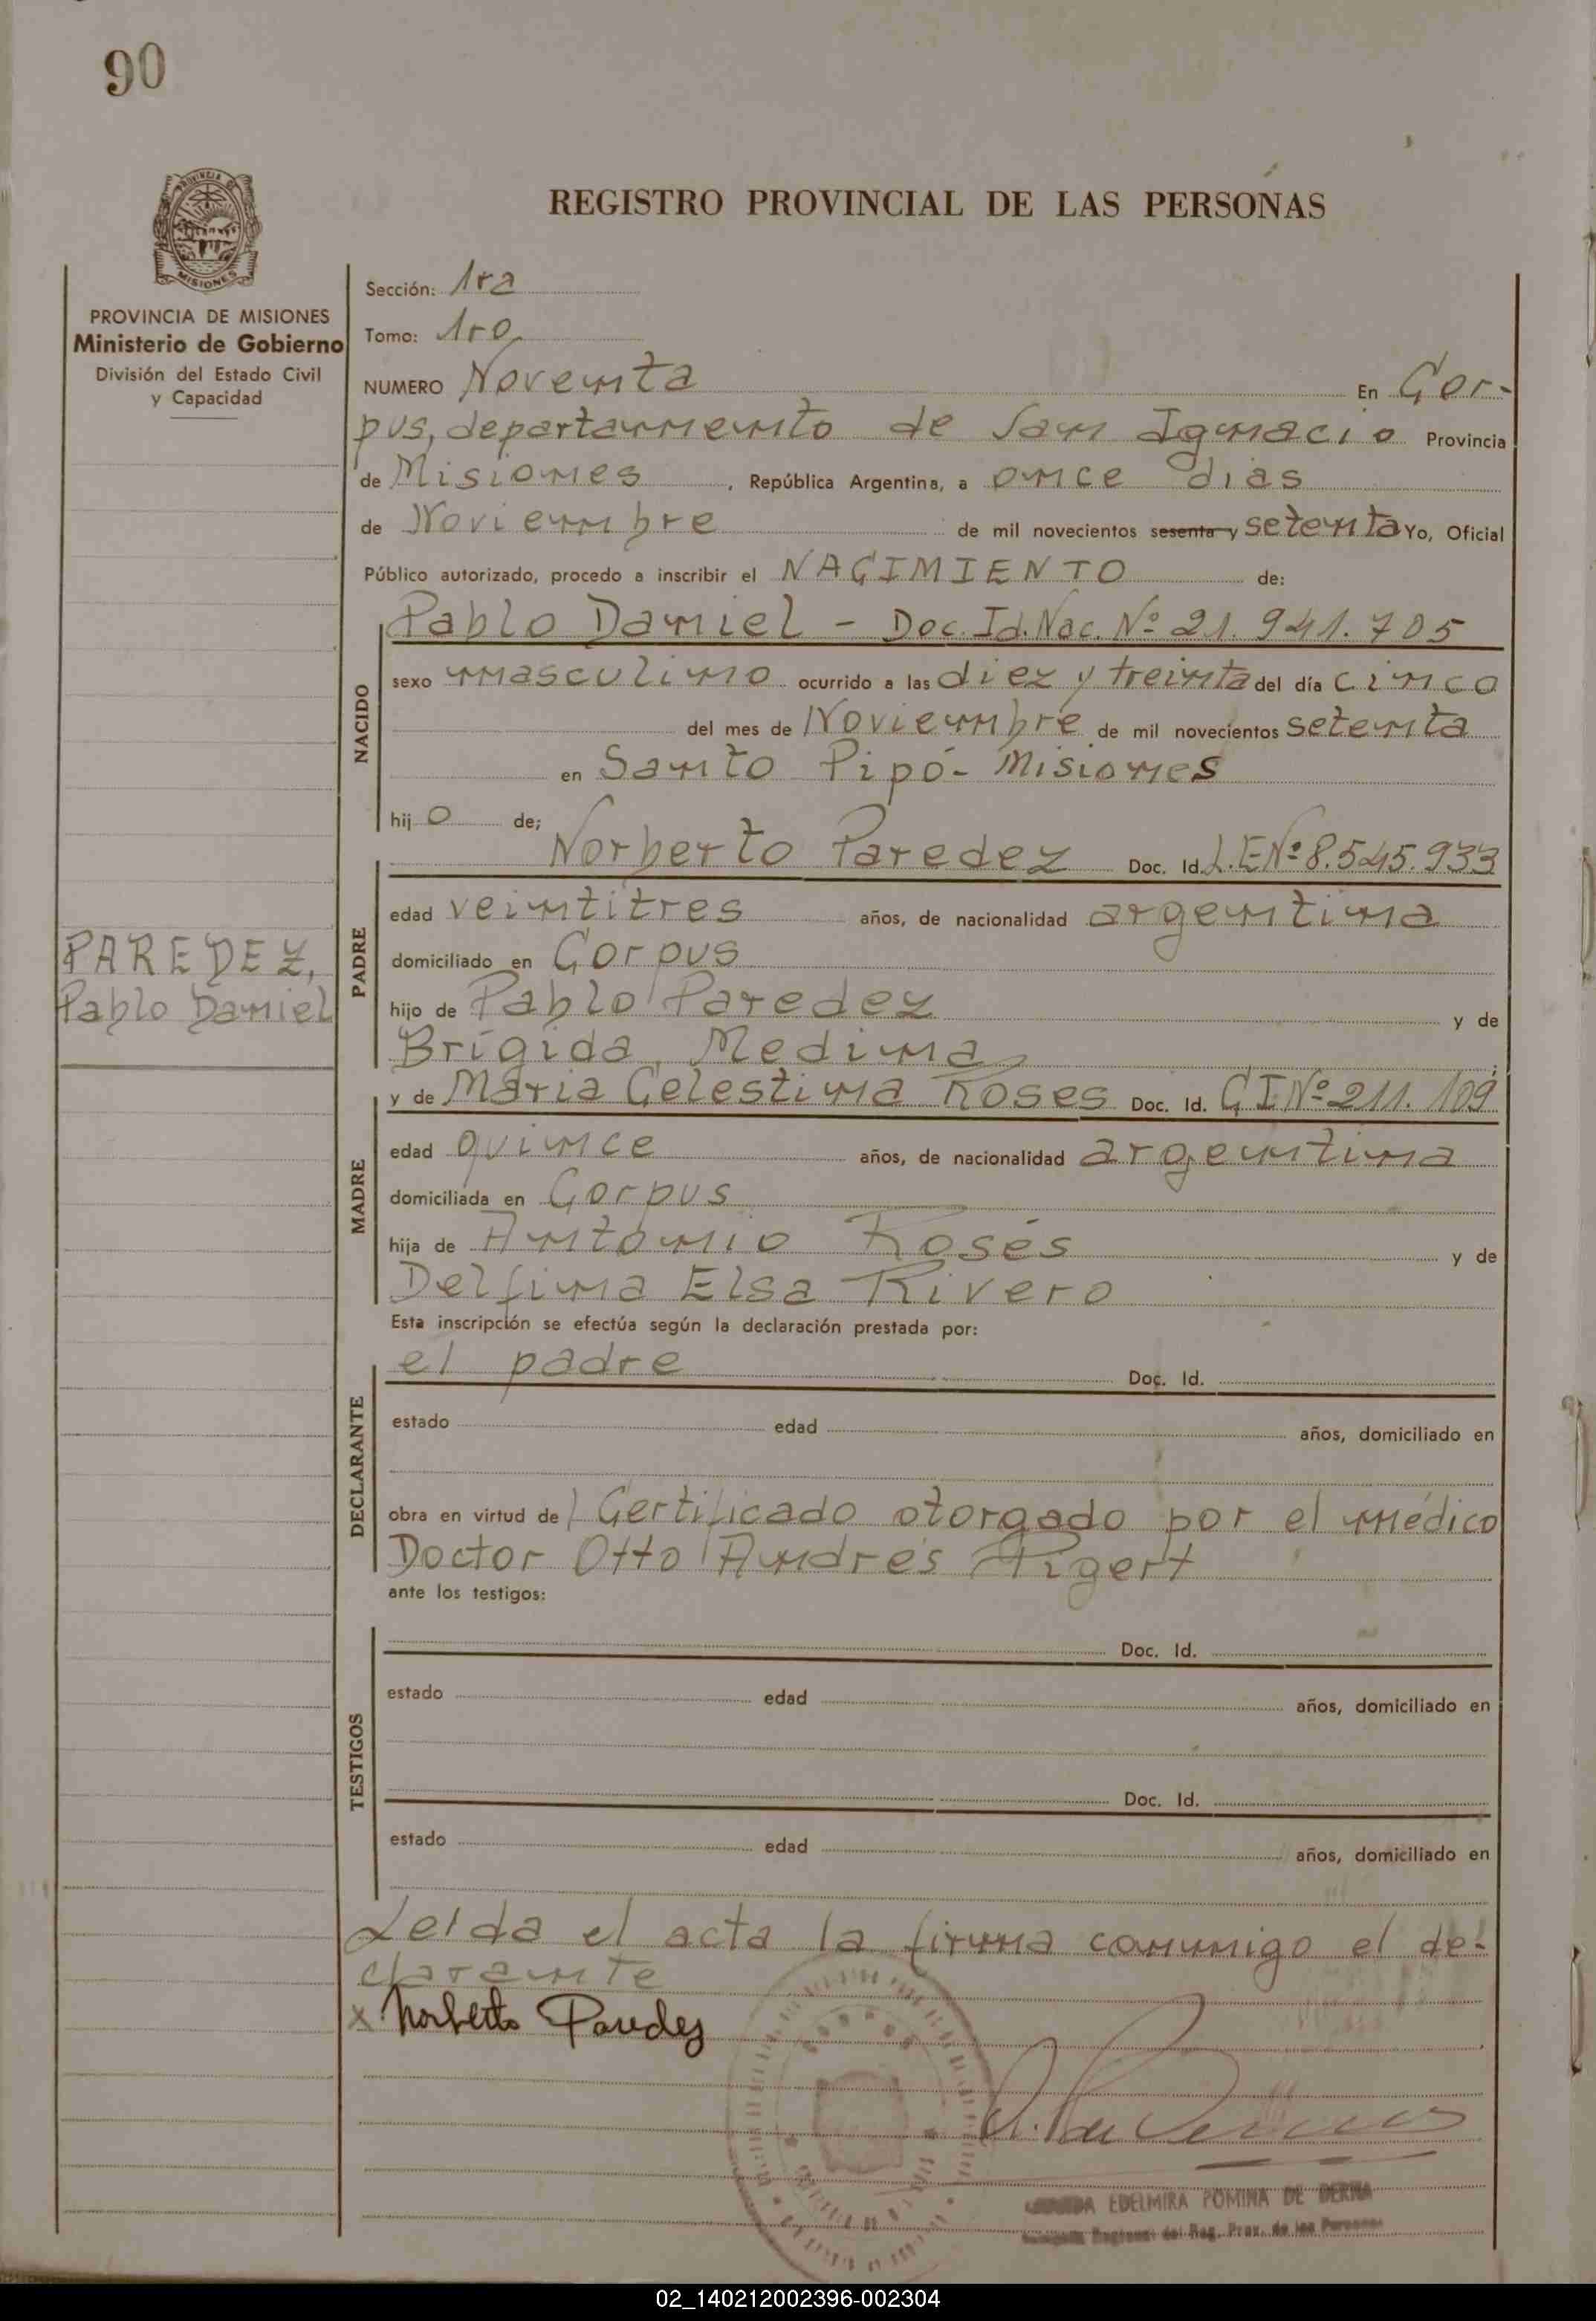 90
PROVINCIA DE
MISIONES
PROVINCIA DE MISIONES
Ministerio de Gobierno
División del Estado Civil
y Capacidad
PAREDEZ,
Pablo Daniel
REGISTRO PROVINCIAL DE LAS PERSONAS
Sección: 1ra
Tomo: 1ro
NUMERO Noventa En Cor-
pus, departamento de San Ignacio Provincia
de Misiones, República Argentina, a once días
de Noviembre de mil novecientos sesenta y setenta Yo, Oficial
Público autorizado, procedo a inscribir el NACIMIENTO de:
NACIDO
Pablo Daniel - Doc. Id. Nac. Nº 21.941.705
sexo masculino ocurrido a las diez y treinta del día cinco
del mes de Noviembre de mil novecientos setenta
en Santo Pipó - Misiones
hijo de;
PADRE
Norberto Paredez Doc. Id. L.E Nº 8.545.933
edad veintitres años, de nacionalidad argentina
domiciliado en Corpus
hijo de Pablo Paredez y de
Brígida Medina
MADRE
y de María Celestina Roses Doc. Id. C I Nº 211.109
edad quince años, de nacionalidad argentina
domiciliada en Corpus
hija de Antonio Rosés y de
Delfina Elsa Rivero
Esta inscripción se efectúa según la declaración prestada por:
DECLARANTE
el padre Doc. Id.
estado edad años, domiciliado en
obra en virtud del Certificado otorgado por el médico
Doctor Otto Andrés
ante los testigos:
TESTIGOS
Doc. Id.
estado edad años, domiciliado en
Doc. Id.
estado edad años, domiciliado en
Leída el acta la firma conmigo el de-
clarante
x Norberto Paredez
EDELMIRA POMINA DE
del Reg. Prov. de las Personas
02_140212002396-002304